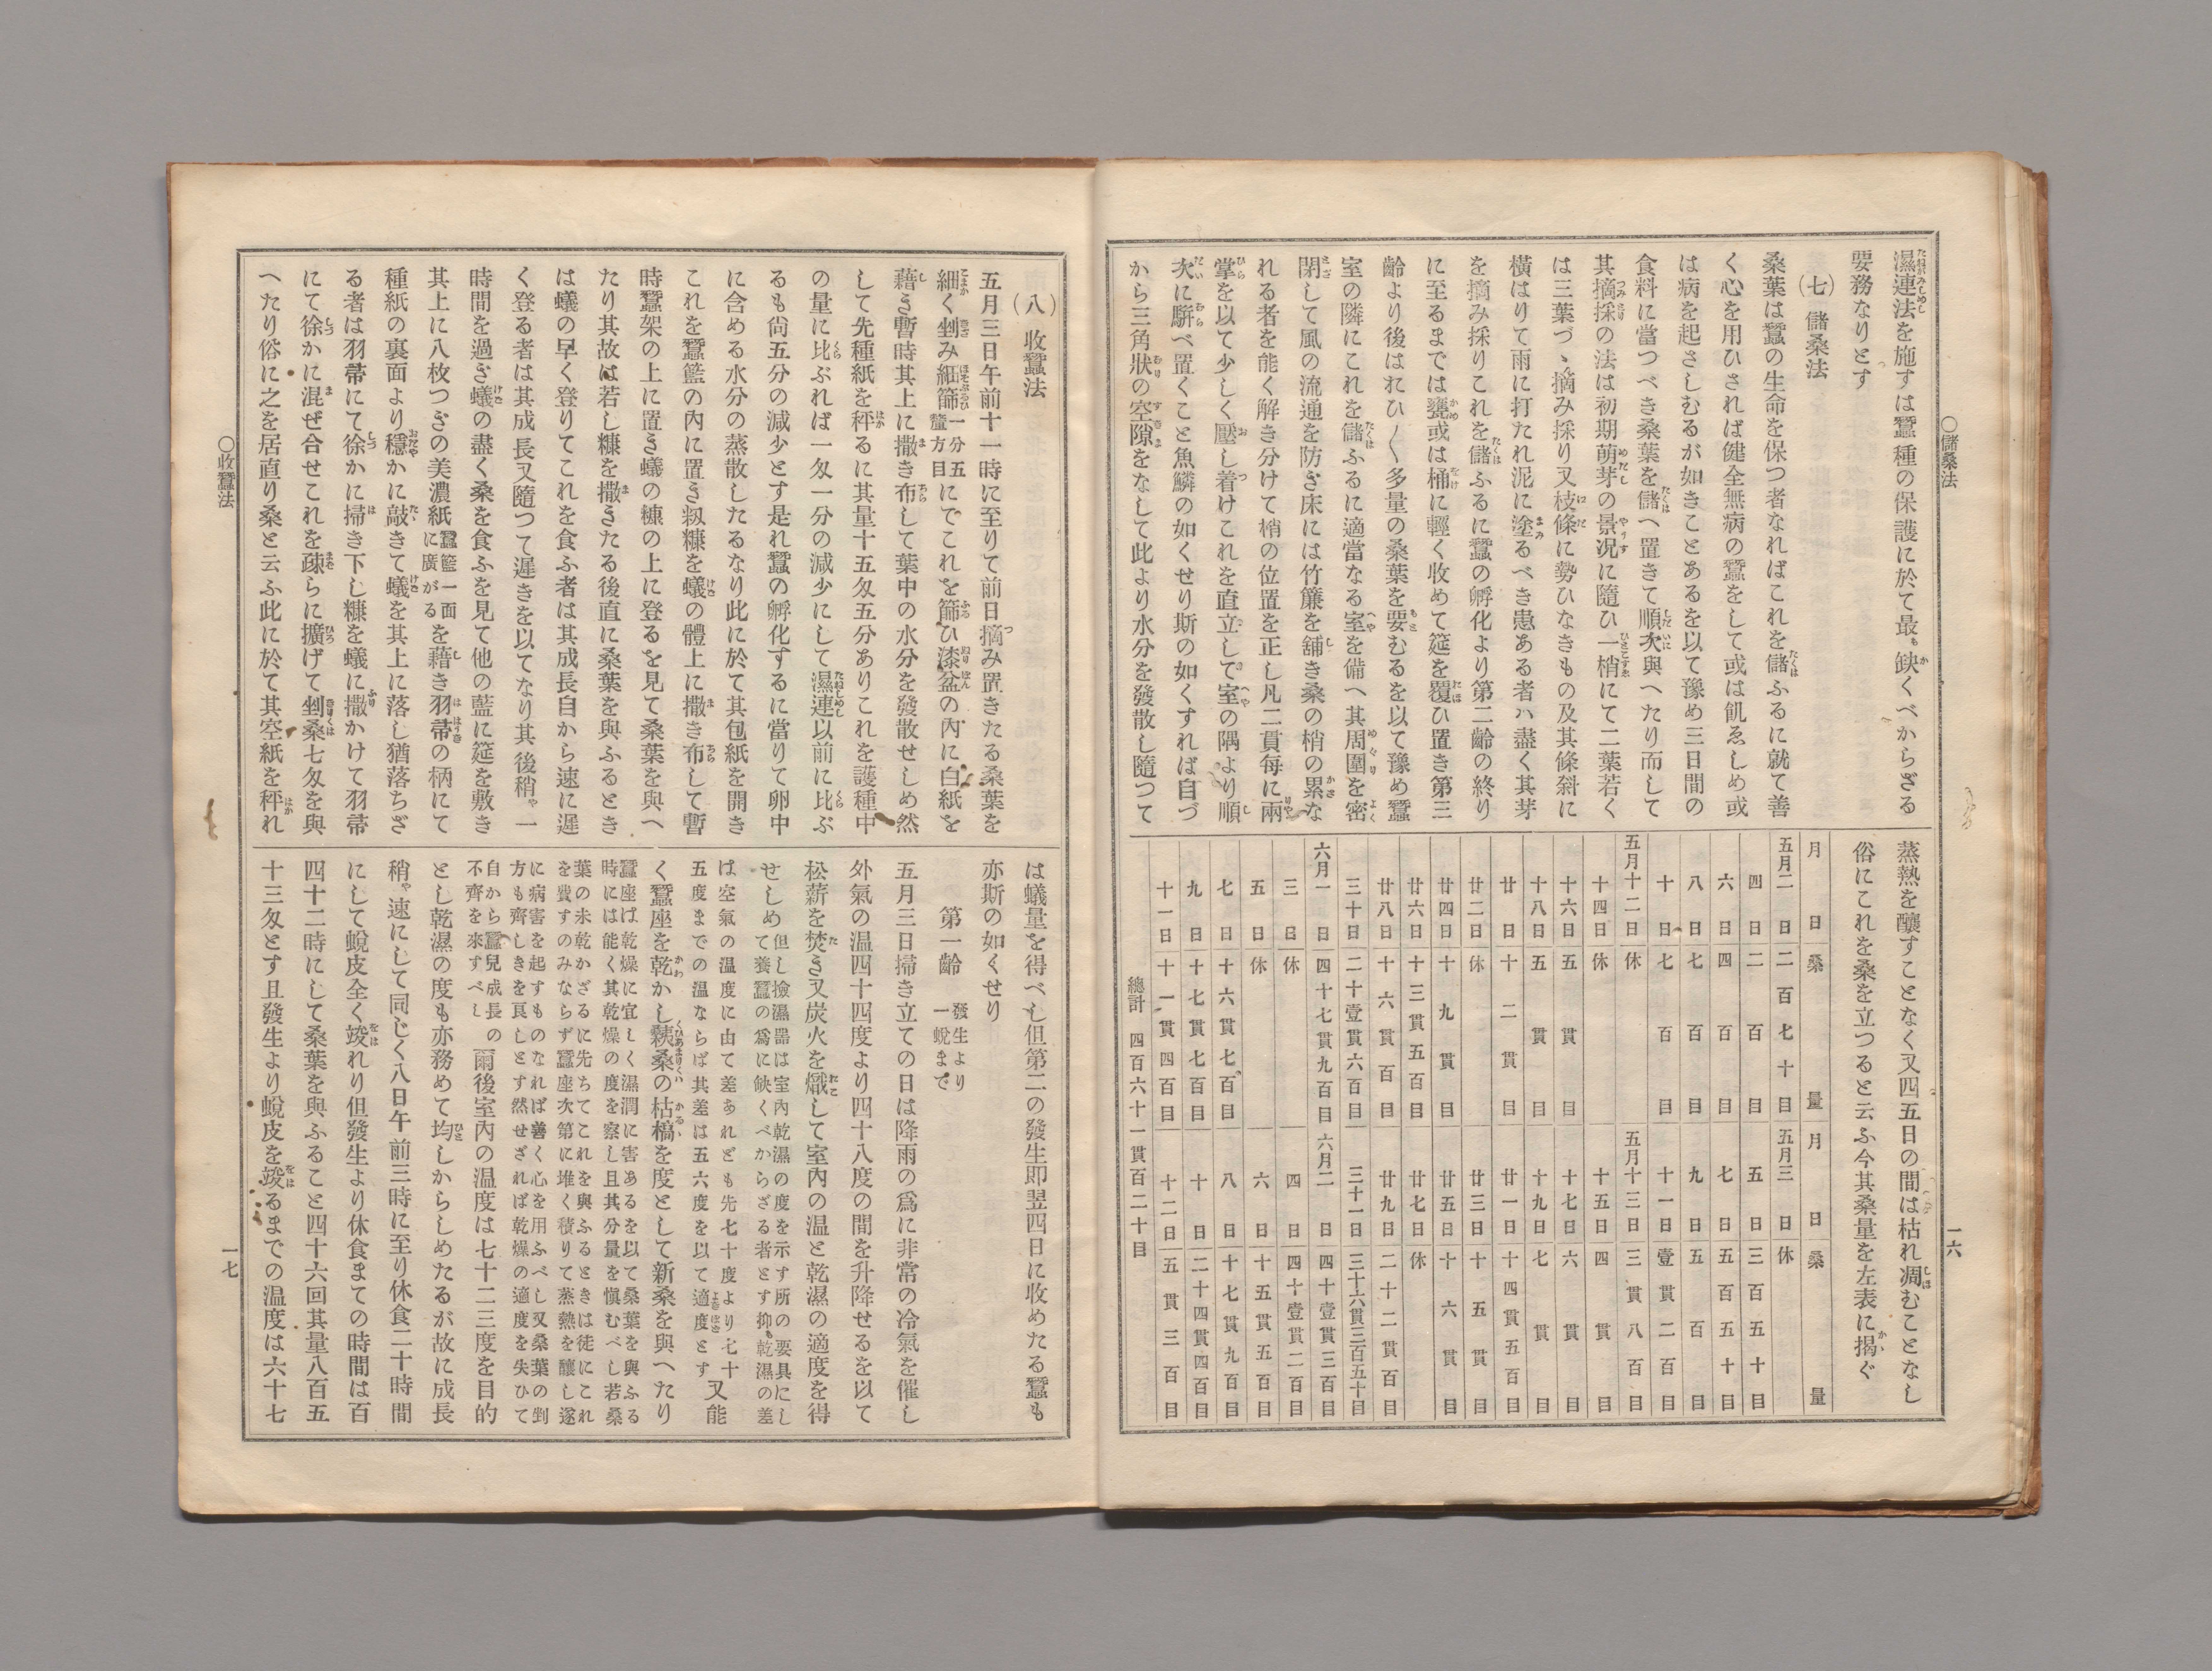 ○儲桑法
一六
濕連法を施すは蠶種の保護に於て最も缺くべからざる
要務なりとす
(七) 儲桑法
桑葉は蠶の生命を保つ者なればこれを儲ふるに就て善
く心を用ひされば健全無病の蠶をして或は飢ゑしめ或
は病を起さしむるが如きことあるを以て豫め三日間の
食料に當つべき桑葉を儲へ置きて順次與へたり而して
其摘採の法は初期萌芽の景况に隨ひ一梢にて二葉若く
は三葉づゝ摘み採り又枝條に勢ひなきもの及其條斜に
橫はりて雨に打たれ泥に塗るべき患ある者ハ盡く其芽
を摘み採りこれを儲ふるに蠶の孵化より第二齡の終り
に至るまでは甕或は桶に輕く收めて筵を覆ひ置き第三
齡より後はれひ〱多量の桑葉を要むるを以て豫め蠶
室の隣にこれを儲ふるに適當なる室を備へ其周圍を密
閉して風の流通を防ぎ床には竹簾を舖き桑の梢の累な
れる者を能く解き分けて梢の位置を正し凡二貫每に兩
掌を以て少しく壓し着けこれを直立して室の隅より順
次に駢べ置くこと魚鱗の如くせり斯の如くすれば自づ
から三角狀の空隙をなして此より水分を發散し隨つて
蒸熱を釀すことなく又四五日の間は枯れ凋むことなし
俗にこれを桑を立つると云ふ今其桑量を左表に揭ぐ
月日 桑量 月日 桑量
五月二日 二百七十目 五月三日 休
四日 二百目 五日 三百五十目
六日 四百目 七日 五百五十目
八日 七百目 九日 五百目
十日 七百目 十一日 壹貫二百目
五月十二日 休 五月十三日 三貫八百目
十四日 休 十五日 四貫目
十六日 五貫目 十七日 六貫目
十八日 五貫目 十九日 七貫目
廿日 十二貫目 廿一日 十四貫五百目
廿二日 休 廿三日 十五貫目
廿四日 十九貫目 廿五日 十六貫目
廿六日 十三貫五百目 廿七日 休
廿八日 十六貫百目 廿九日 二十二貫百目
三十日 二十壹貫六百目 三十一日 三十六貫三百五十目
六月一日 四十七貫九百目 六月二日 四十壹貫三百目
三日 休 四日 四十壹貫二百目
五日 休 六日 十五貫五百目
七日 十六貫七百目 八日 十七貫九百目
九日 十七貫七百目 十日 二十四貫四百目
十一日 十一貫四百目 十二日 五貫三百目
總計 四百六十一貫百二十目
(八) 收蠶法
五月三日午前十一時に至りて前日摘み置きたる桑葉を
細く剉み細篩一分五釐方目にでこれを篩ひ漆盆の內に白紙を
藉き暫時其上に撒き布して葉中の水分を發散せしめ然
して先種紙を秤るに其量十五匁五分ありこれを護種中
の量に比ぶれば一匁一分の減少にして濕連以前に比ぶ
るも尙五分の減少とす是れ蠶の孵化するに當りて卵中
に含める水分の蒸散したるなり此に於て其包紙を開き
これを蠶籃の內に置き籾糠を蟻の體上に撒き布して暫
時蠶架の上に置き蟻の糠の上に登るを見て桑葉を與へ
たり其故は若し糠を撒きたる後直に桑葉を與ふるとき
は蟻の早く登りてこれを食ふ者は其成長自から速に遲
く登る者は其成長又隨つて遲きを以てなり其後稍や一
時間を過ぎ蟻の盡く桑を食ふを見て他の藍に筵を敷き
其上に八枚つぎの美濃紙蠶籃一面に廣がるを藉き羽箒の柄にて
種紙の裏面より穩かに敲きて蟻を其上に落し猶落ちざ
る者は羽箒にて徐かに掃き下し糠を蟻に撒かけて羽箒
にて徐かに混ぜ合せこれを疎らに擴げて剉桑七匁を與
へたり俗に之を居直り桑と云ふ此に於て其空紙を秤れ
は蟻量を得べし但第二の發生即翌四日に收めたる蠶も
亦斯の如くせり
第一齡 發生より一蛻まで
五月三日掃き立ての日は降雨の爲に非常の冷氣を催し
外氣の温四十四度より四十八度の間を升降せるを以て
松薪を焚き又炭火を熾して室內の温と乾濕の適度を得
せしめ但し撿濕器は室內乾濕の度を示す所の要具にして養蠶の爲に缺くべからざる者とす抑も乾濕の差
は空氣の温度に由て差あれども先七十度より七十五度までの温ならば其差は五六度を以て適度とす又能
く蠶座を乾かし䔉桑の枯槁を度として新桑を與へたり
蠶座は乾燥に宜しく濕潤に害あるを以て桑葉を與ふる
時には能く其乾燥の度を察し且其分量を愼むべし若桑
葉の未乾かざるに先ちてこれを與ふるときは徒にこれ
を費すのみならず蠶座次第に堆く積りて蒸熱を釀し遂
に病害を起すものなれば善く心を用ふべし又桑葉の剉
方も齊しきを良しとす然せざれば乾燥の適度を失ひて
自から蠶兒成長の不齊を來すべし爾後室內の温度は七十二三度を目的
とし乾濕の度も亦務めて均しからしめたるが故に成長
稍や速にして同じく八日午前三時に至り休食二十時間
にして蛻皮全く竣れり但發生より休食まての時間は百
四十二時にして桑葉を與ふること四十六回其量八百五
十三匁とす且發生より蛻皮を竣るまでの温度は六十七
○收蠶法
一七